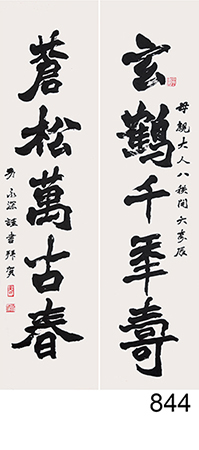 玄鶴千年壽
母親大人八秩開六榮辰
蒼松萬古春
男永深謹書拜賀
844